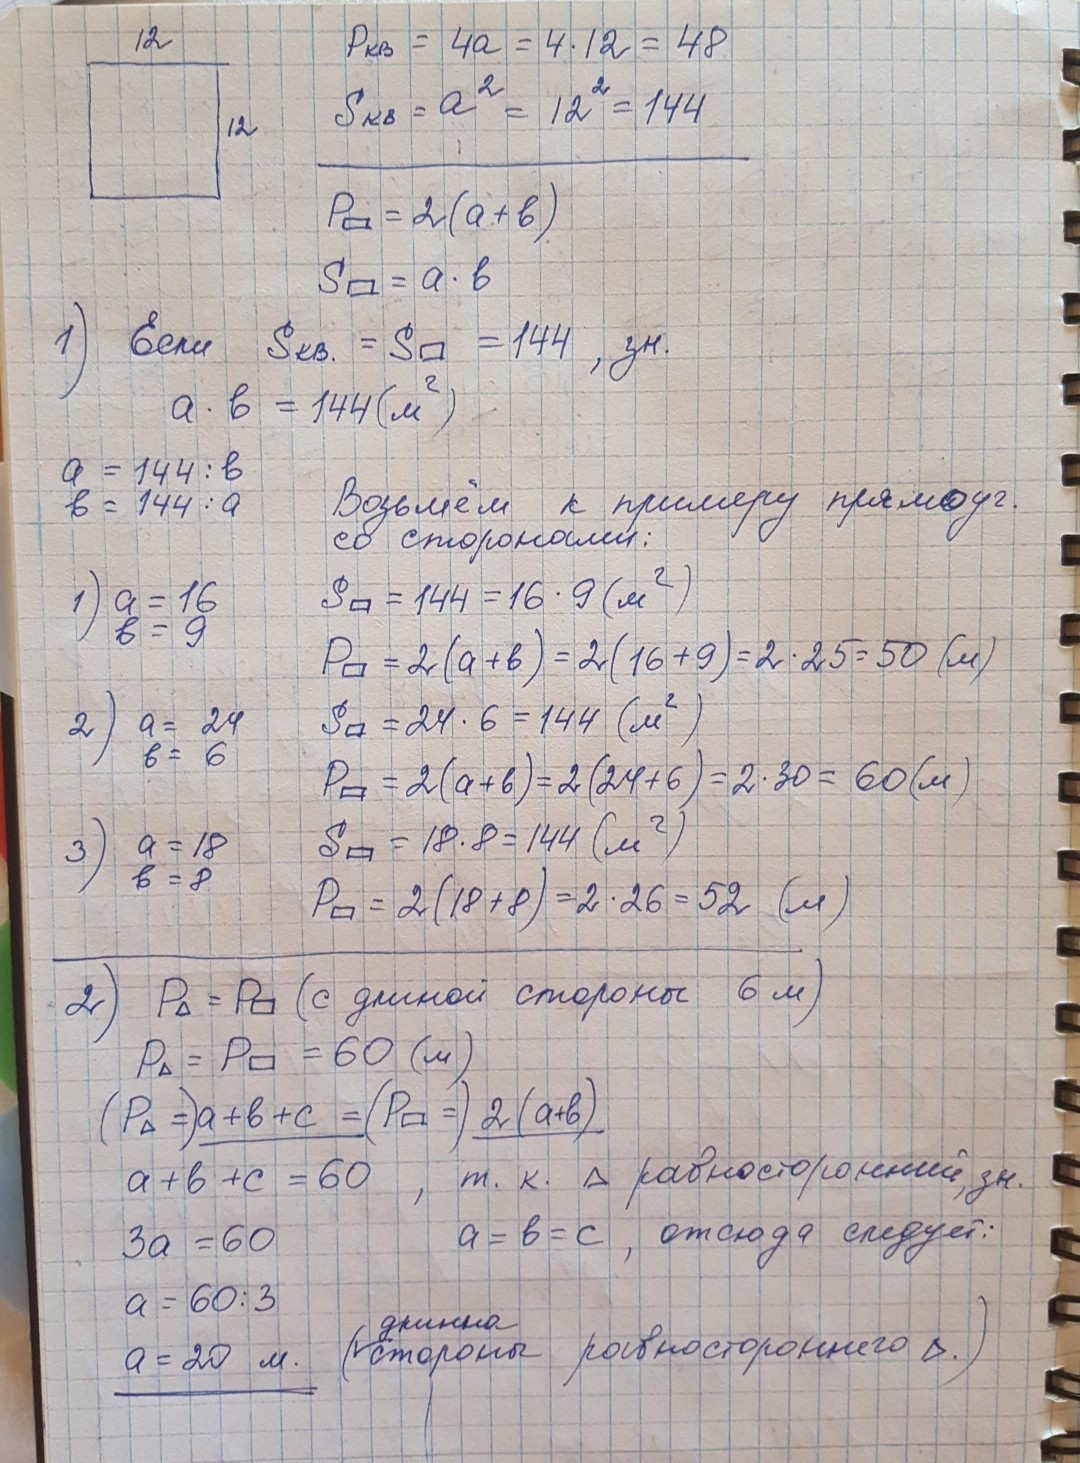 12
12
Pкв = 4a = 4·12 = 48
Sкв = a² = 12² = 144
P▭ = 2(a+в)
S▭ = a·в
1) Если Sкв. = S▭ = 144, зн.
a·в = 144(м²)
a = 144:в
в = 144:a
Возьмём к примеру прямоуг.
со сторонами:
1) a = 16
в = 9
S▭ = 144 = 16·9(м²)
P▭ = 2(a+в) = 2(16+9) = 2·25 = 50 (м)
2) a = 24
в = 6
S▭ = 24·6 = 144 (м²)
P▭ = 2(a+в) = 2(24+6) = 2·30 = 60(м)
3) a = 18
в = 8
S▭ = 18·8 = 144 (м²)
P▭ = 2(18+8) = 2·26 = 52 (м)
2) P△ = P▭ (с длиной стороны 6 м)
P△ = P▭ = 60 (м)
(P△ =) a+в+c = (P▭ =) 2(a+в)
a+в+c = 60, т.к. △ равносторонний, зн.
3a = 60 a = в = c, отсюда следует:
a = 60:3
a = 20 м. (длинна стороны равностороннего △.)